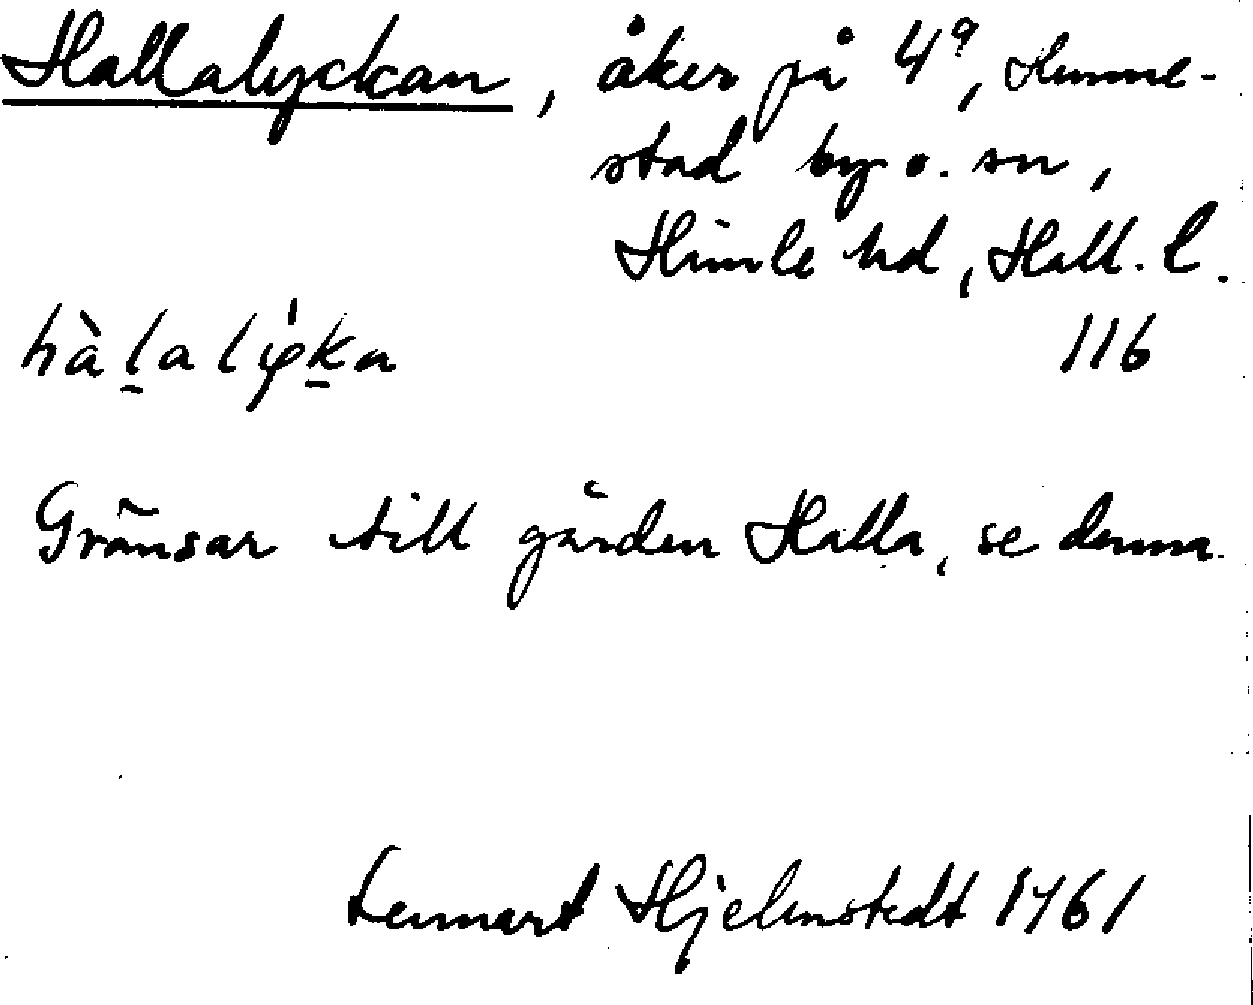 Hallalyckan, åker på 4⁹, Hunne-
stad by o. sn,
Himle hd, Hall. l.
116
hàḻalýḵa
Gränsar till gården Halla, se denna.
Lennart Hjelmstedt 1961